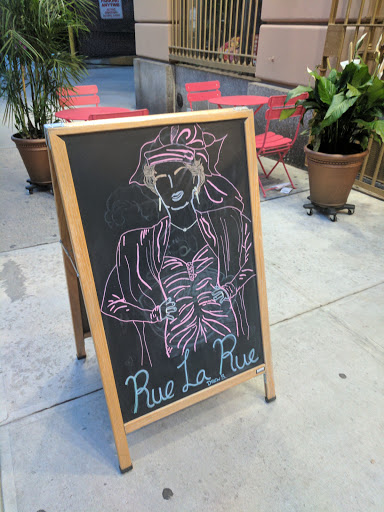 Rue La Rue